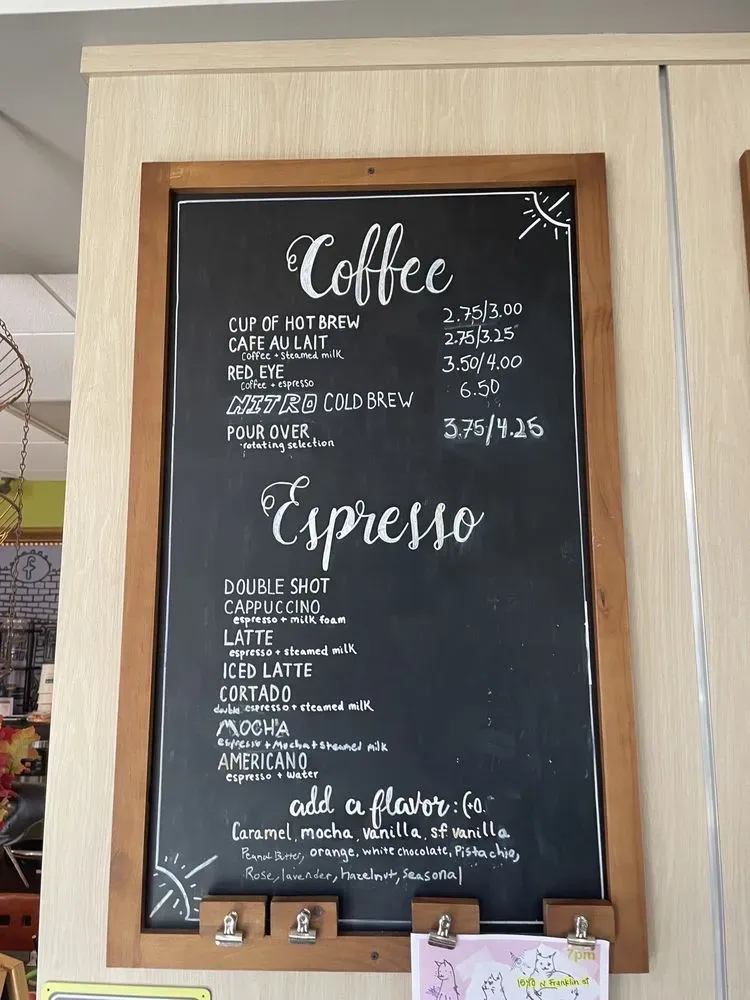 Coffee
CUP OF HOT BREW 2.75/3.00
CAFE AU LAIT 2.75/3.25
coffee + steamed milk
RED EYE 3.50/4.00
coffee + espresso
NITRO COLD BREW 6.50
POUR OVER 3.75/4.25
rotating selection
Espresso
DOUBLE SHOT
CAPPUCCINO
espresso + milk foam
LATTE
espresso + steamed milk
ICED LATTE
CORTADO
double espresso + steamed milk
MOCHA
espresso + Mocha + steamed milk
AMERICANO
espresso + water
add a flavor: (+0.
Caramel, mocha, vanilla, sf vanilla
Peanut Butter, orange, white chocolate, Pistachio,
Rose, lavender, hazelnut, seasonal
7pm
N Franklin st